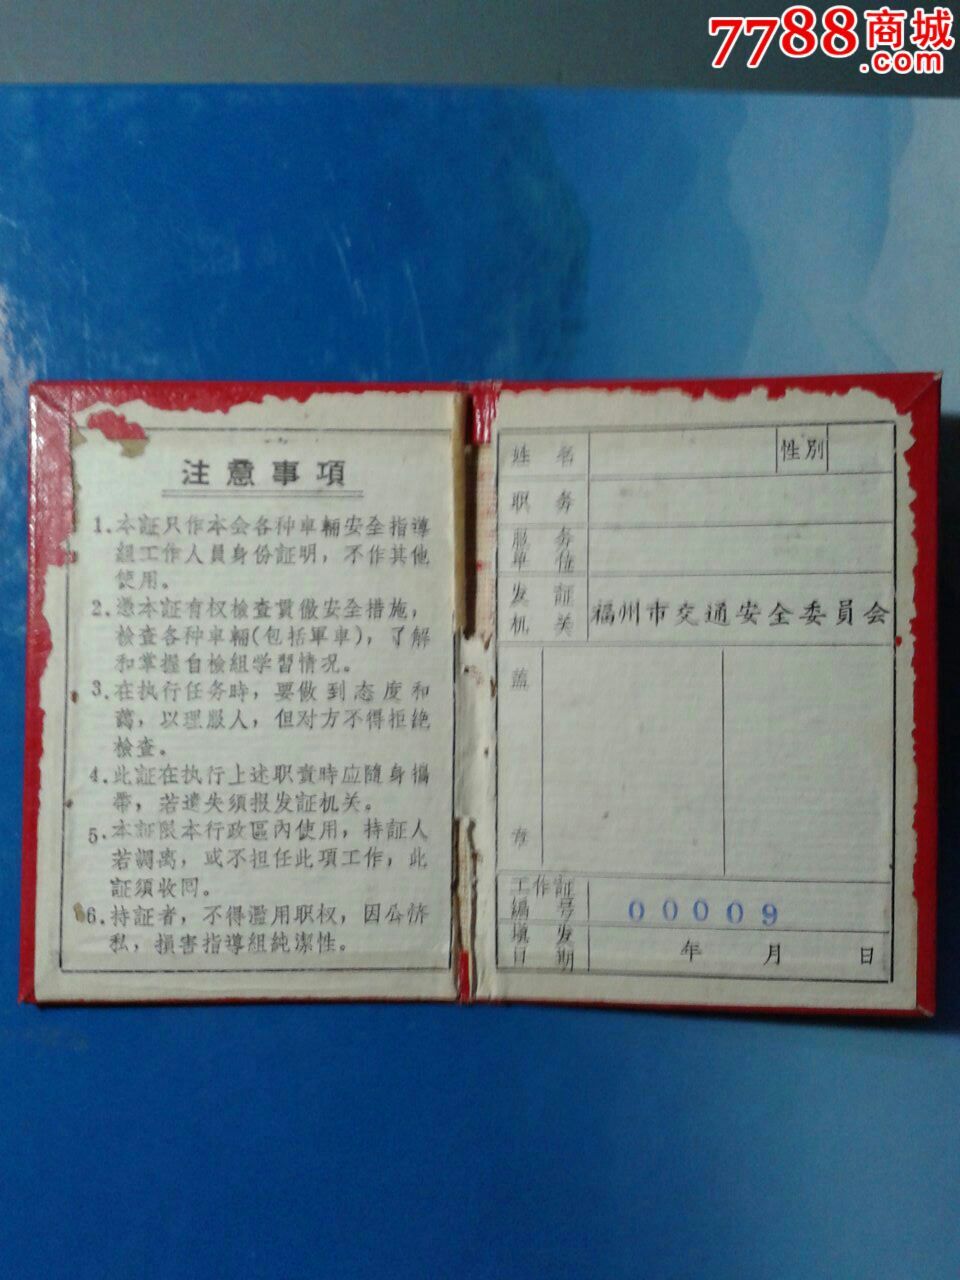 7788商城
.com
注意事項
1.本証只作本会各种車輛安全指導
組工作人員身份証明，不作其他
使用。
2.憑本証有权檢查貫徹安全措施，
檢查各种車輛(包括軍車)，了解
和掌握自檢組学習情况。
3.在执行任务時，要做到态度和
藹，以理服人，但对方不得拒絶
檢查。
4.此証在执行上述职責時应隨身攜
帶，若遺失須报发証机关。
5.本証限本行政區內使用，持証人
若調离，或不担任此項工作，此
証須收回。
6.持証者，不得濫用职权，因公徇
私，損害指導組純潔性。
姓名 性别
职务
服务
單位
发証
机关 福州市交通安全委員会
蓋
章
工作証
編号 00009
填发
日期 年 月 日